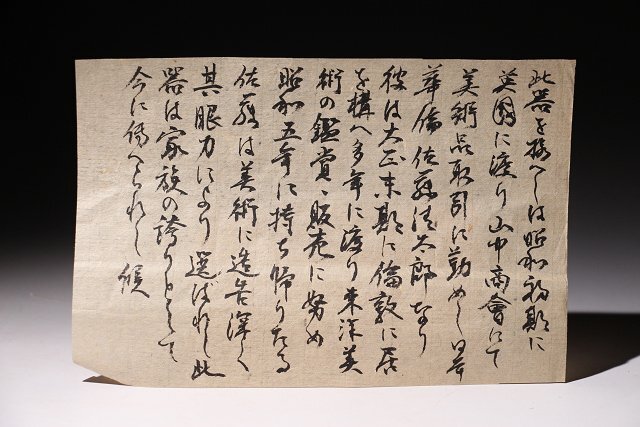 此器を携へしは昭和初期に
英國に渡り山中商會にて
美術品取引に勤めし日本
華僑佐藤清太郎なり
彼は大正末期に倫敦に居
を構へ多年に渡り東洋美
術の鑑賞、販売に努め
昭和五年に持ち帰りたる
佐藤は美術に造詣深く
其眼力により選ばれし此
器は家族の誇りとして
今に傳へられし候